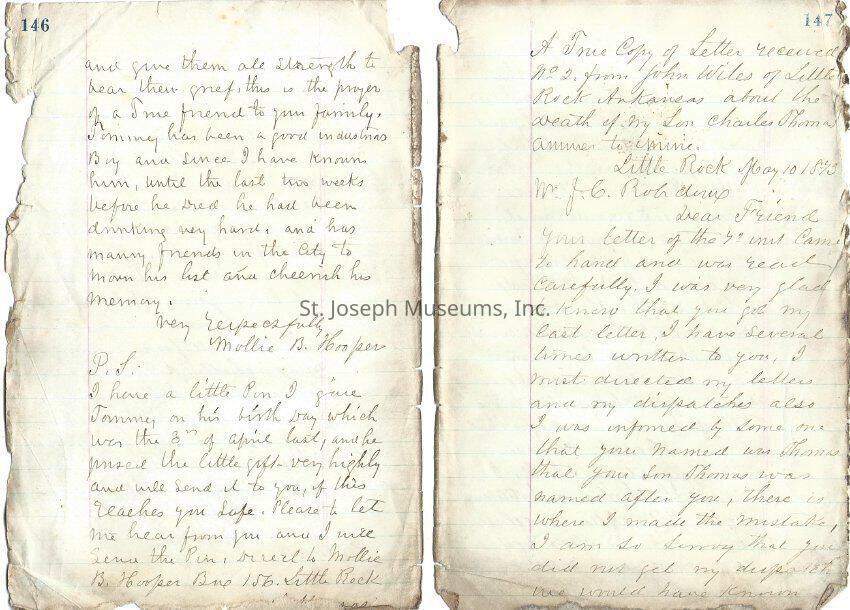 146
and give them all strength to
bear their grief. this is the prayer
of a True friend to your family.
Tommey has been a good industrous
Boy and since I have known
him, until the last two weeks
before he Died he had been
drinking very hard. and has
manny friends in the City to
morn his lost and cheerish his
memory.
Very Respectfully
Mollie B. Hooper
P.S.
I have a little Pin I gave
Tommey on his birth Day which
was the of april last, and he
prised the little gift very highly
and will send it to you, if this
Reaches you Safe. Please to let
me hear from you and I will
Send the Pin, Direct to Mollie
B. Hooper Box 156. Little Rock
147
A True Copy of Letter received
No 2. from John Wiles of Little
Rock Arkansas about the
death of my Son Charles Thomas
answer to mine.
Little Rock May 10 1873
Mr J. C. Robidoux
Dear Friend
Your letter of the inst Came
to hand and was read
Carefully. I was very glad
to know that you got my
last letter, I have Several
times written to you, I
must directed my letters
and my dispatches also
I was informed by Some one
that you named was Thomas
that your Son Thomas was
named after you, there is
where I made the mistake,
I am so Sorrow that you
did not get my dispatch
we would have Known
St. Joseph Museums, Inc.